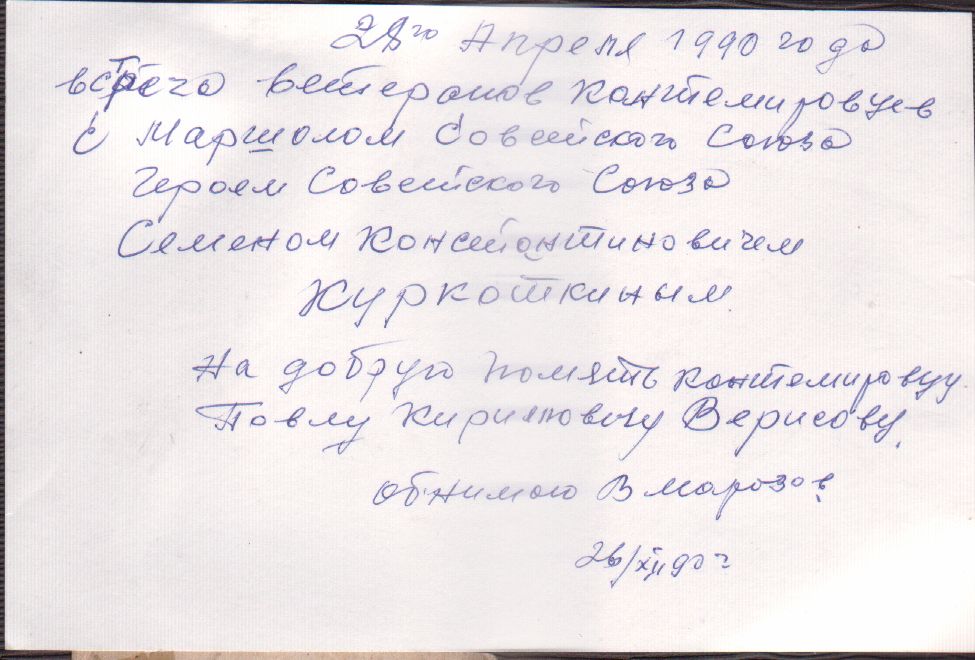 28го Апреля 1990 года
встреча ветеранов Кантемировцев
с Маршалом Советского Союза
Героем Советского Союза
Семеном Константиновичем
Куркоткиным
На добрую память кантемировцу
Павлу Кирилловичу Верисову.
обнимаю В Марозов
26/XII 90 г